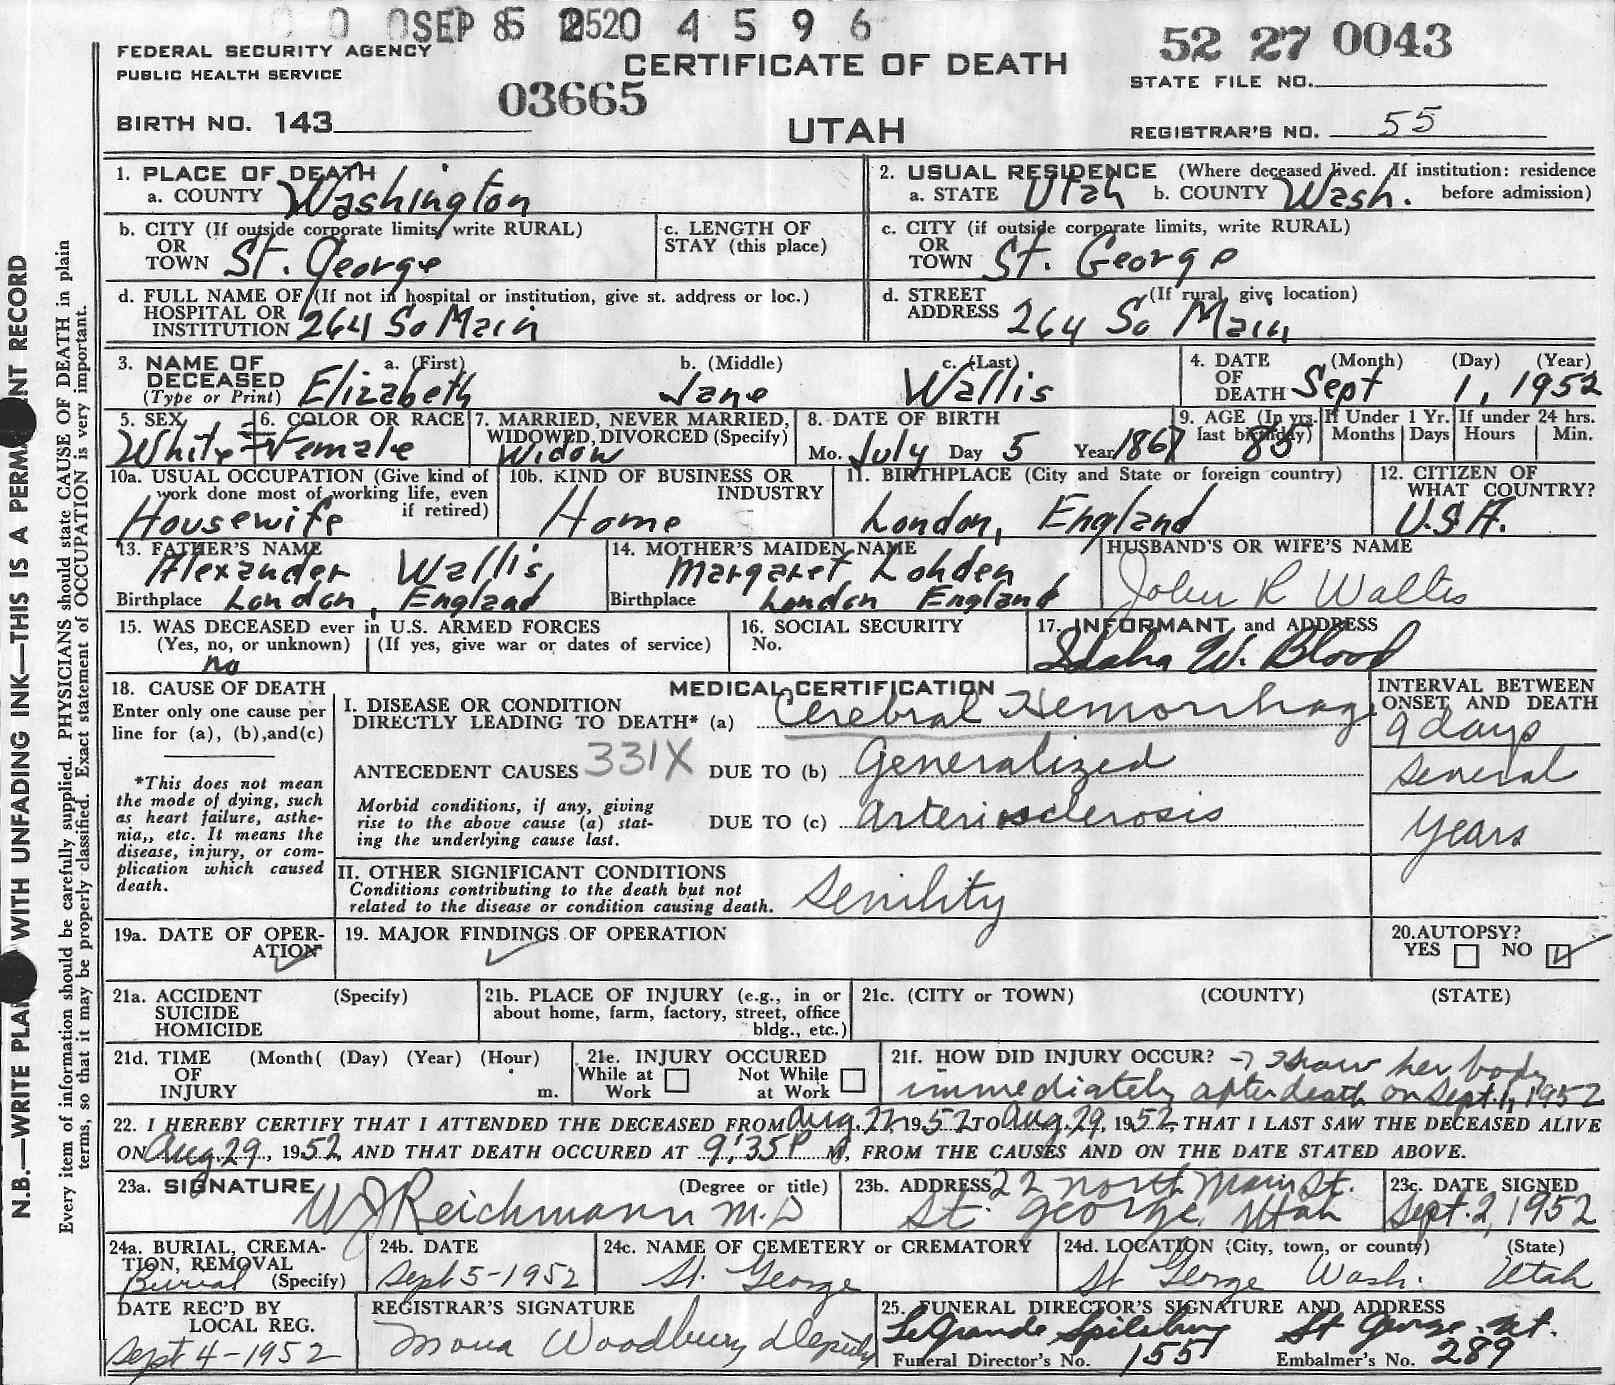 SEP 85 2520 4 5 9 6
FEDERAL SECURITY AGENCY
PUBLIC HEALTH SERVICE
CERTIFICATE OF DEATH
52 27 0043
STATE FILE NO.
03665
BIRTH NO. 143
UTAH
REGISTRAR'S NO. 55
N.B.—WRITE PLAI WITH UNFADING INK—THIS IS A PERMA NT RECORD
Every item of information should be carefully supplied. PHYSICIANS should state CAUSE OF DEATH in plain
terms, so that it may be properly classified. Exact statement of OCCUPATION is very important.
1. PLACE OF DEATH
a. COUNTY Washington
2. USUAL RESIDENCE (Where deceased lived. If institution: residence
a. STATE Utah b. COUNTY Wash. before admission)
b. CITY (If outside corporate limits, write RURAL)
OR
TOWN St. George
c. LENGTH OF
STAY (this place)
c. CITY (if outside corporate limits, write RURAL)
OR
TOWN St. George
d. FULL NAME OF (If not in hospital or institution, give st. address or loc.)
HOSPITAL OR
INSTITUTION 264 So Main
d. STREET (If rural give location)
ADDRESS 264 So Main
3. NAME OF DECEASED
(Type or Print)
a. (First) Elizabeth
b. (Middle) Jane
c. (Last) Wallis
4. DATE OF DEATH (Month) (Day) (Year)
Sept 1, 1952
5. SEX 6. COLOR OR RACE
White Female
7. MARRIED, NEVER MARRIED,
WIDOWED, DIVORCED (Specify)
Widow
8. DATE OF BIRTH
Mo. July Day 5 Year 1867
9. AGE (In yrs. last birthday) 85
If Under 1 Yr. Months Days
If under 24 hrs. Hours Min.
10a. USUAL OCCUPATION (Give kind of
work done most of working life, even
if retired)
Housewife
10b. KIND OF BUSINESS OR
INDUSTRY
Home
11. BIRTHPLACE (City and State or foreign country)
London, England
12. CITIZEN OF
WHAT COUNTRY?
U.S.A.
13. FATHER'S NAME
Alexander Wallis
Birthplace London, England
14. MOTHER'S MAIDEN NAME
Margaret Lohden
Birthplace London England
HUSBAND'S OR WIFE'S NAME
John R Wallis
15. WAS DECEASED ever in U.S. ARMED FORCES
(Yes, no, or unknown) (If yes, give war or dates of service)
no
16. SOCIAL SECURITY
No.
17. INFORMANT and ADDRESS
Idaha W. Blood
18. CAUSE OF DEATH
Enter only one cause per
line for (a), (b),and(c)
*This does not mean
the mode of dying, such
as heart failure, asthe-
nia,, etc. It means the
disease, injury, or com-
plication which caused
death.
MEDICAL CERTIFICATION
I. DISEASE OR CONDITION
DIRECTLY LEADING TO DEATH* (a) Cerebral Hemorrhage
ANTECEDENT CAUSES 331X DUE TO (b) Generalized
Morbid conditions, if any, giving
rise to the above cause (a) stat-
ing the underlying cause last.
DUE TO (c) Arteriosclerosis
INTERVAL BETWEEN
ONSET AND DEATH
9 days
several
years
II. OTHER SIGNIFICANT CONDITIONS
Conditions contributing to the death but not
related to the disease or condition causing death.
Senility
19a. DATE OF OPER-
ATION
19. MAJOR FINDINGS OF OPERATION
20.AUTOPSY?
YES NO
21a. ACCIDENT (Specify)
SUICIDE
HOMICIDE
21b. PLACE OF INJURY (e.g., in or
about home, farm, factory, street, office
bldg., etc.)
21c. (CITY or TOWN) (COUNTY) (STATE)
21d. TIME (Month( (Day) (Year) (Hour)
OF
INJURY m.
21e. INJURY OCCURED
While at Work
Not While at Work
21f. HOW DID INJURY OCCUR? → I saw her body
immediately after death on Sept. 1, 1952
22. I HEREBY CERTIFY THAT I ATTENDED THE DECEASED FROM Aug. 22 1952 TO Aug. 29, 1952, THAT I LAST SAW THE DECEASED ALIVE
ON Aug. 29, 1952 AND THAT DEATH OCCURED AT 9:35P M, FROM THE CAUSES AND ON THE DATE STATED ABOVE.
23a. SIGNATURE (Degree or title)
W J Reichmann M.D
23b. ADDRESS 22 north Main St.
St. George, Utah
23c. DATE SIGNED
Sept. 2, 1952
24a. BURIAL, CREMA-
TION, REMOVAL
Burial (Specify)
24b. DATE
Sept 5-1952
24c. NAME OF CEMETERY or CREMATORY
St. George
24d. LOCATION (City, town, or county) (State)
St George Wash. Utah
DATE REC'D BY
LOCAL REG.
Sept 4-1952
REGISTRAR'S SIGNATURE
Mona Woodbury Deputy
25. FUNERAL DIRECTOR'S SIGNATURE AND ADDRESS
LeGrande Spilsbury St George. Ut.
Funeral Director's No. 155 Embalmer's No. 289